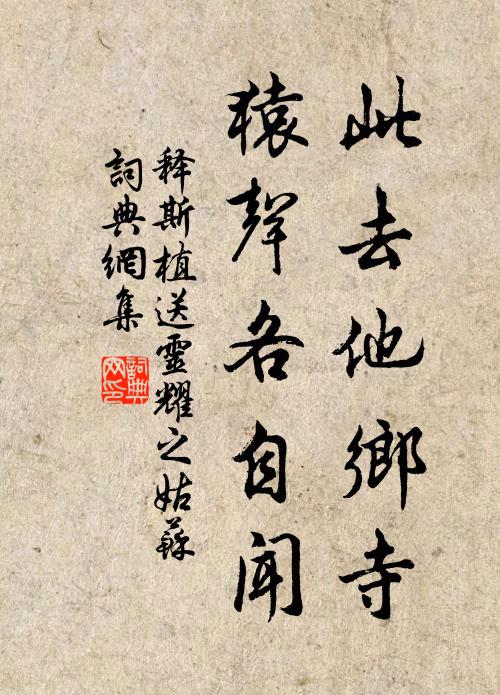 此去他鄉寺
猿聲各自聞
释斯植送靈耀之姑蘇
詞典網集
詞典
网印